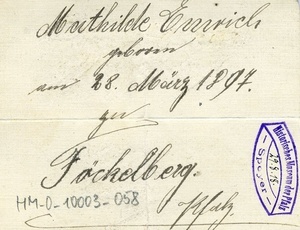 Mathilde Emrich
geboren
am 28. März 1897.
zu
Föckelberg.
Pfalz
HM-0-10003-058
Historisches Museum der Pfalz
- Speyer -